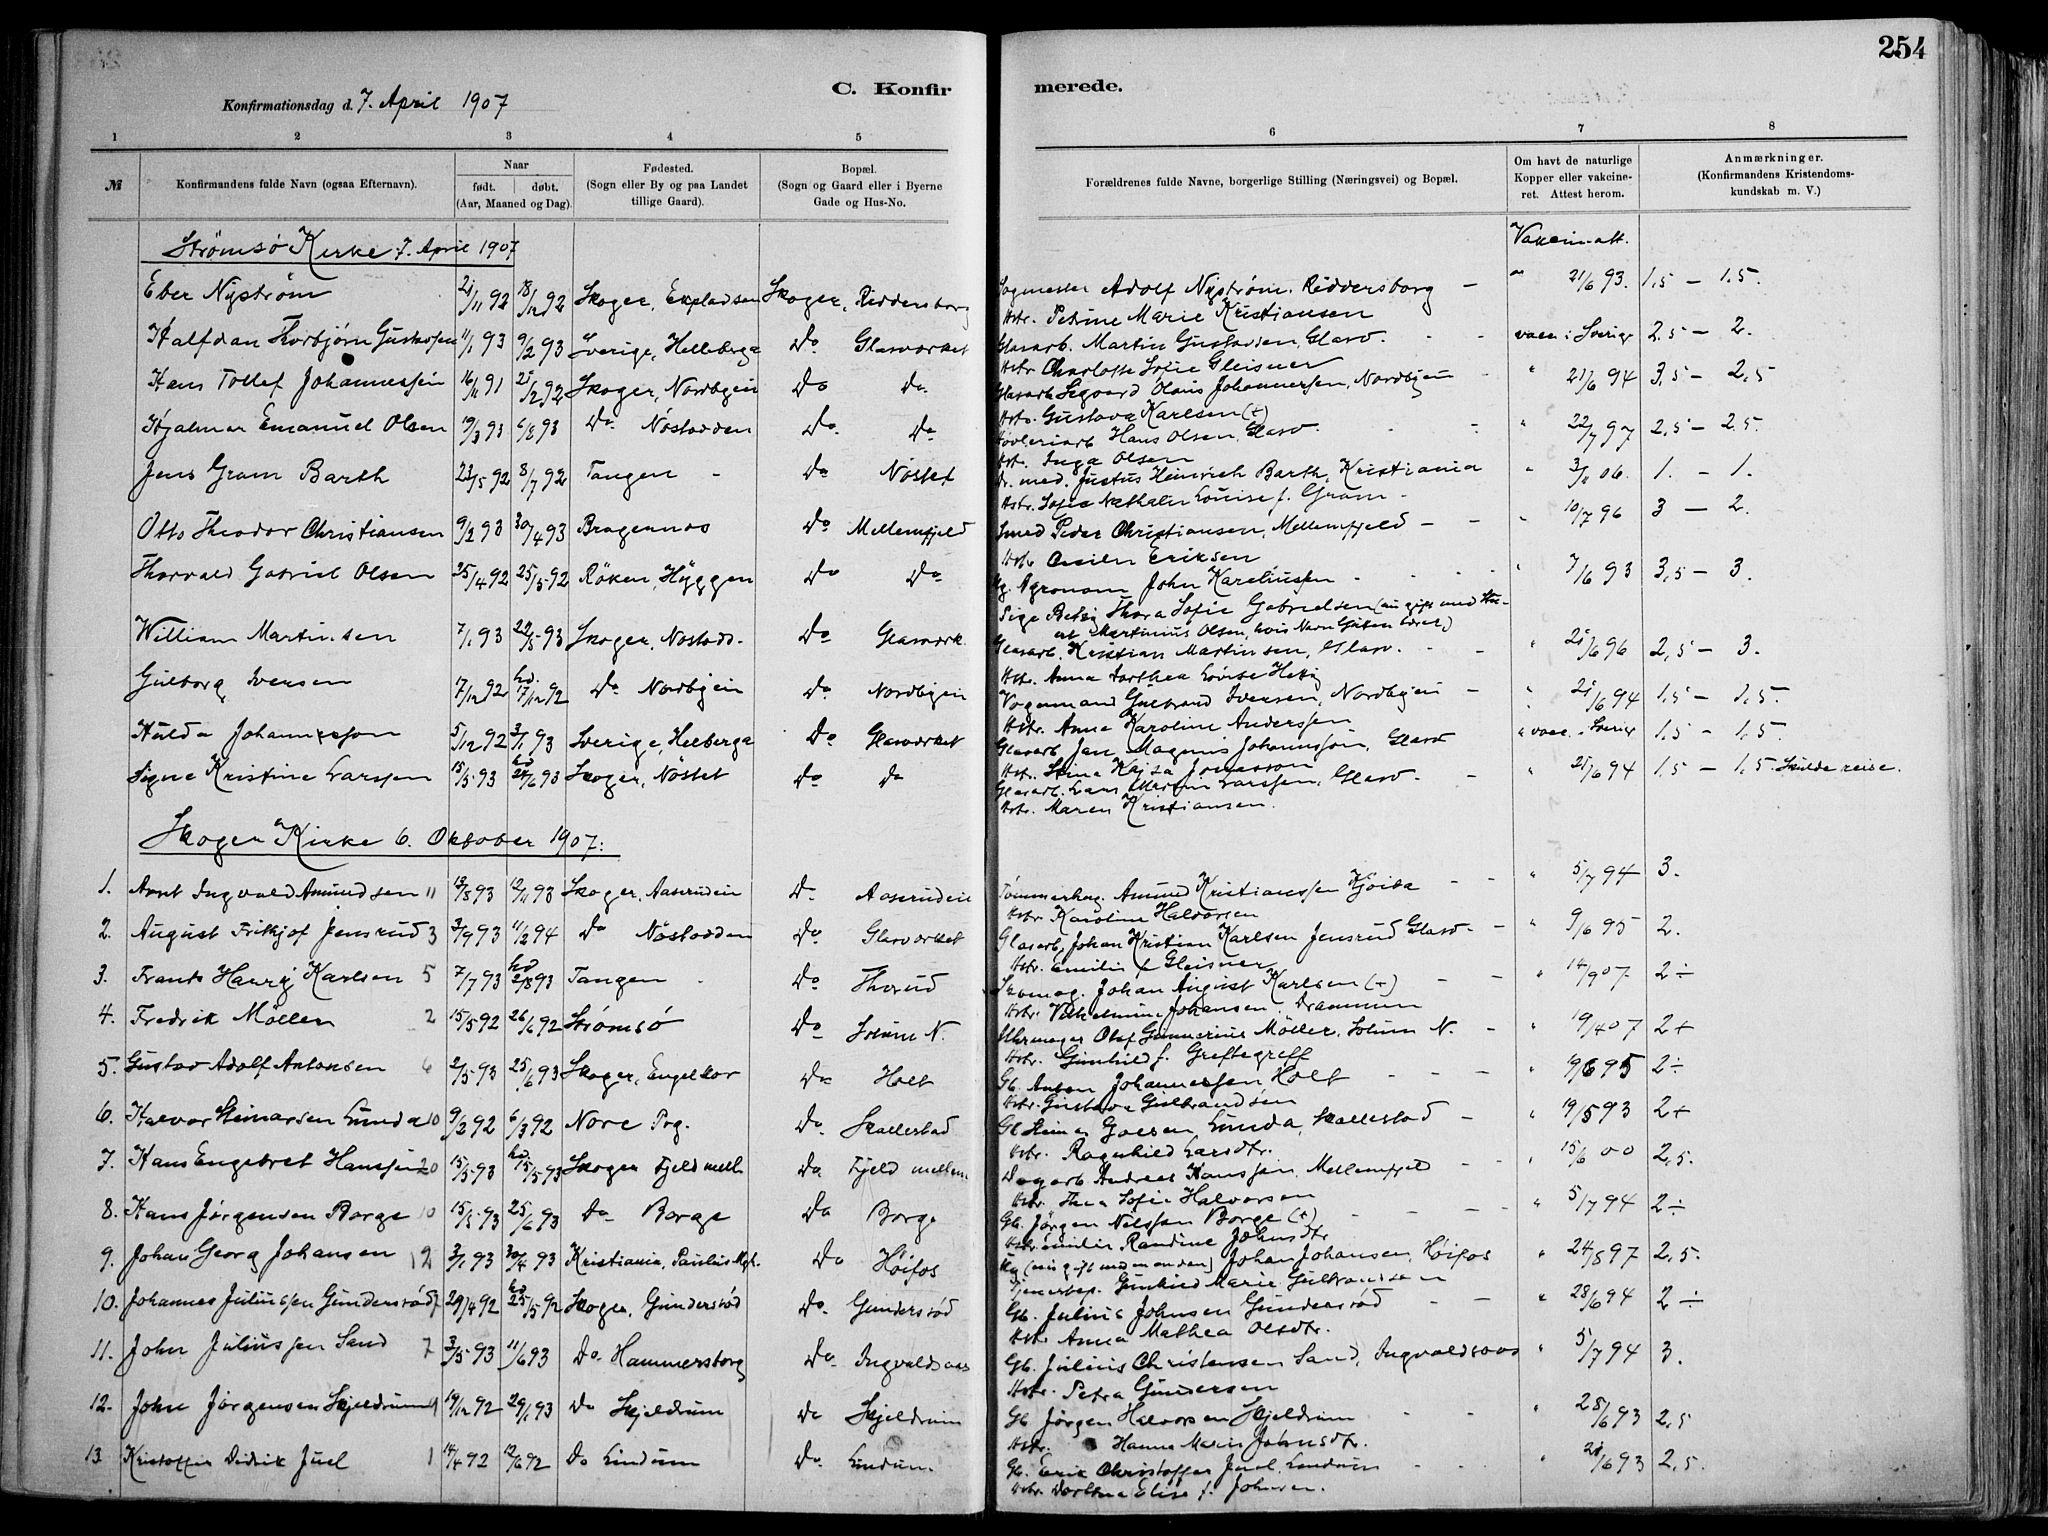 254
Konfirmationsdag d. 7. April 1907
C. Konfir merede.
1 2 3 4 5 6 7 8
№
Konfirmandens fulde Navn (ogsaa Efternavn).
Naar
født. døbt.
(Aar, Maaned og Dag).
Fødested.
(Sogn eller By og paa Landet
tillige Gaard).
Bopæl.
(Sogn og Gaard eller i Byerne
Gade og Hus-No.
Forældrenes fulde Navne, borgerlige Stilling (Næringsvei) og Bopæl.
Om havt de naturlige
Kopper eller vakcine-
ret. Attest herom.
Anmærkninger.
(Konfirmandens Kristendoms-
kundskab m. V.)
Strømsø Kirke 7. April 1907
Vakcin-att.
Eber Nystrøm 21/11 92 18/12 92 Skoger, Skoger, Riddersborg Adolf Nystrøm, Riddersborg - " 21/6 93. 1,5 - 1,5.
Hstr. Petrine Marie Kristiansen
Halfdan Thorbjørn Gustafsen 11/1 93 9/2 93 Sverige, Helleberga Do Glasværket Glasarb. Martin Gustavsen, Glasv. - - vacc. i Sverige 2.5 - 2.
Hstr Charlotte Sofie Gleisner
Hans Tollef Johannessen 16/11 91 21/2 92 Skoger, Nordbyein Do Do Glasarb Segvard Olaus Johannessen, Nordbyein - " 21/6 94 3,5 - 2,5
Hstr. Gustava Karlsen (+)
Hjalmar Emanuel Olsen 19/3 93 6/8 93 Do Nöstodden Do. Do Høvleriarb Hans Olsen, Glasv. - - " 22/7 97 2,5 - 2.5.
Hst. Inga Olsen
Jens Gram Barth 23/5 92 8/7 92 Tangen - Do Nöstet Dr. med. Justus Heinrich Barth, Kristiania " 3/11 06. 1. - 1.
Hstr. Sofie Nathalie Louise f. Gram -
Otto Theodor Christiansen 9/2 93 30/4 93 Bragernes Do Mellemfjeld Smed Peder Christiansen, Mellemfjeld - - " 10/7 96 3 - 2.
Hstr. Eriksen
Thorvald Gabriel Olsen 25/4 92 25/5 92 Røken, Hyggen Do Do Ug. Agronom John Kareliussen - - - - " 7/6 93 3,5 - 3.
Pige Betsy Thora Sofie Gabrielsen (nu gift med
Martinius Olsen, hvis Navn Gutten bærer)
William Martinsen 7/1 93 22/5 93 Skoger, Nöstodd. Do Glasværk. Glasarb. Kristian Martinsen, Glasv. - - " 21/6 96 2,5 - 3.
Hstr. Anna Dorthea Lovise
Gulborg Iversen 7/12 92 hd. 17/12 92 Do Nordbyein Do Nordbyein Vognmand Gulbrand Iversen, Nordbyein - " 21/6 94 1,5 - 1,5.
Hstr. Anna Karoline Anderssen
Hulda Johannesson 5/12 92 3/1 93 Sverige, Helberga Do Glasværket Glasarb Jan Magnus Johannsson, Glasv " vacc. i Sverige 1,5 - 1,5.
Hst. Stina Kajsa Jonasson
Signe Kristine Larssen 15/5 93 hd 24/6 93 Skoger, Nöstet Do do Glasarb. Lars Martin Larssen, Glasv. - - " 21/6 94 1,5 - 1,5. Skulde reise.
Hstr. Maren Kristiansen.
Skoger Kirke 6. Oktober 1907:
1. Arnt Ingvald Amundsen 11 13/8 93 12/11 93 Skoger, Aaserudein Do. Aaserudein Tømmerhug. Amund Kristianssen - - " 5/7 94 3.
Hstr Karoline Halvorsen
2. August Fritjof Jensrud 3 3/9 93 11/2 94 Do Nöstodden Do Glasværket Glasarb, Johan Kristian Karlsen Jensrud Glasv. - " 9/6 95 2.
Hstr. Emilie f. Gleisner
3. Frants Harry Karlsen 5 7/7 93 hd 2/8 93 Tangen - Do Thorud Skomag. Johan August Karlsen (+) - - " 14/9 07 2÷
Hstr. Vilhelmine Johansen, Drammen
4. Fredrik Möller 2 15/5 92 26/6 92 Strømsö Do Solum N. Uhrmager Olaf Gunnerius Möller, Solum N. - " 19/4 07 2+
Hstr. Gunhild f. Greftegreff
5. Gustav Adolf Antonsen 6 2/5 93 25/6 93 Skoger, Do Holt Gb. Anton Johannessen Holt - - - " 19/6 95 2÷
Hstr. Gustava Gulbrandsen
6. Halvor Steinarsen Lunda 10 9/2 92 6/3 92 Nore Prg. Do. Skallestad Gb Steinar Goesen Lunda, Skallestad - " 19/5 93 2+
Hstr. Ragnhild Larsdtr.
7. Hans Engebret Hanssen 20 15/5 93 hd 15/5 93 Skoger Fjeld mell. Do Fjeld mellem Dagarb Andreas Hanssen, Mellemfjeld - - " 15/6 00 2,5.
Hstr. Thea Sofie Halvorsen
8. Hans Jørgensen Borge 10 15/5 93 25/6 93 Do Borge Do Borge Gb. Jörgen Nilssen Borge (+) - - - - " 5/7 94 2÷
Hstr. Emilie Randine Johnsdtr
9. Johan Georg Johansen 12 3/1 93 30/4 93 Kristiania, Paulus Mgh. Do Höifos Ug (nu gift med en anden) Johan Johansen, Höifos " 24/8 97 2,5.
Tjenestep. Gunhild Marie Gulbrandsen
10. Johannes Juliussen Gunderstöd 7 29/4 92 hd 25/5 92 Skoger, Gunderstöd Do. Gunderstöd Gb. Julius Johnsen Gunderstöd - - " 28/6 94 2÷
Hstr Anna Mathea Olsdtr.
11. John Juliussen Sand 7 3/5 93 11/6 93 Do. Hammersborg Do. Ingvaldsaas Gb. Julius Christensen Sand, Ingvaldsaas " 5/7 94 3.
Hstr. Petra Gundersen
12. John Jørgensen Skjeldrum 9 19/12 92 29/1 93 Do Skjeldrum Do Skjeldrum Gb Jörgen Halvorsen Skjeldrum - - " 28/6 93 2,5
Hstr. Hanna Marie Johnsdtr.
13 Kristoffer Didrik Juel 1 14/4 92 12/6 92 Do Lindum Do. Lindum Gb. Erik Christoffer Juel, Lindum - - " 21/6 93 2,5.
Hstr. Dorthea Elise f. Johnsen.